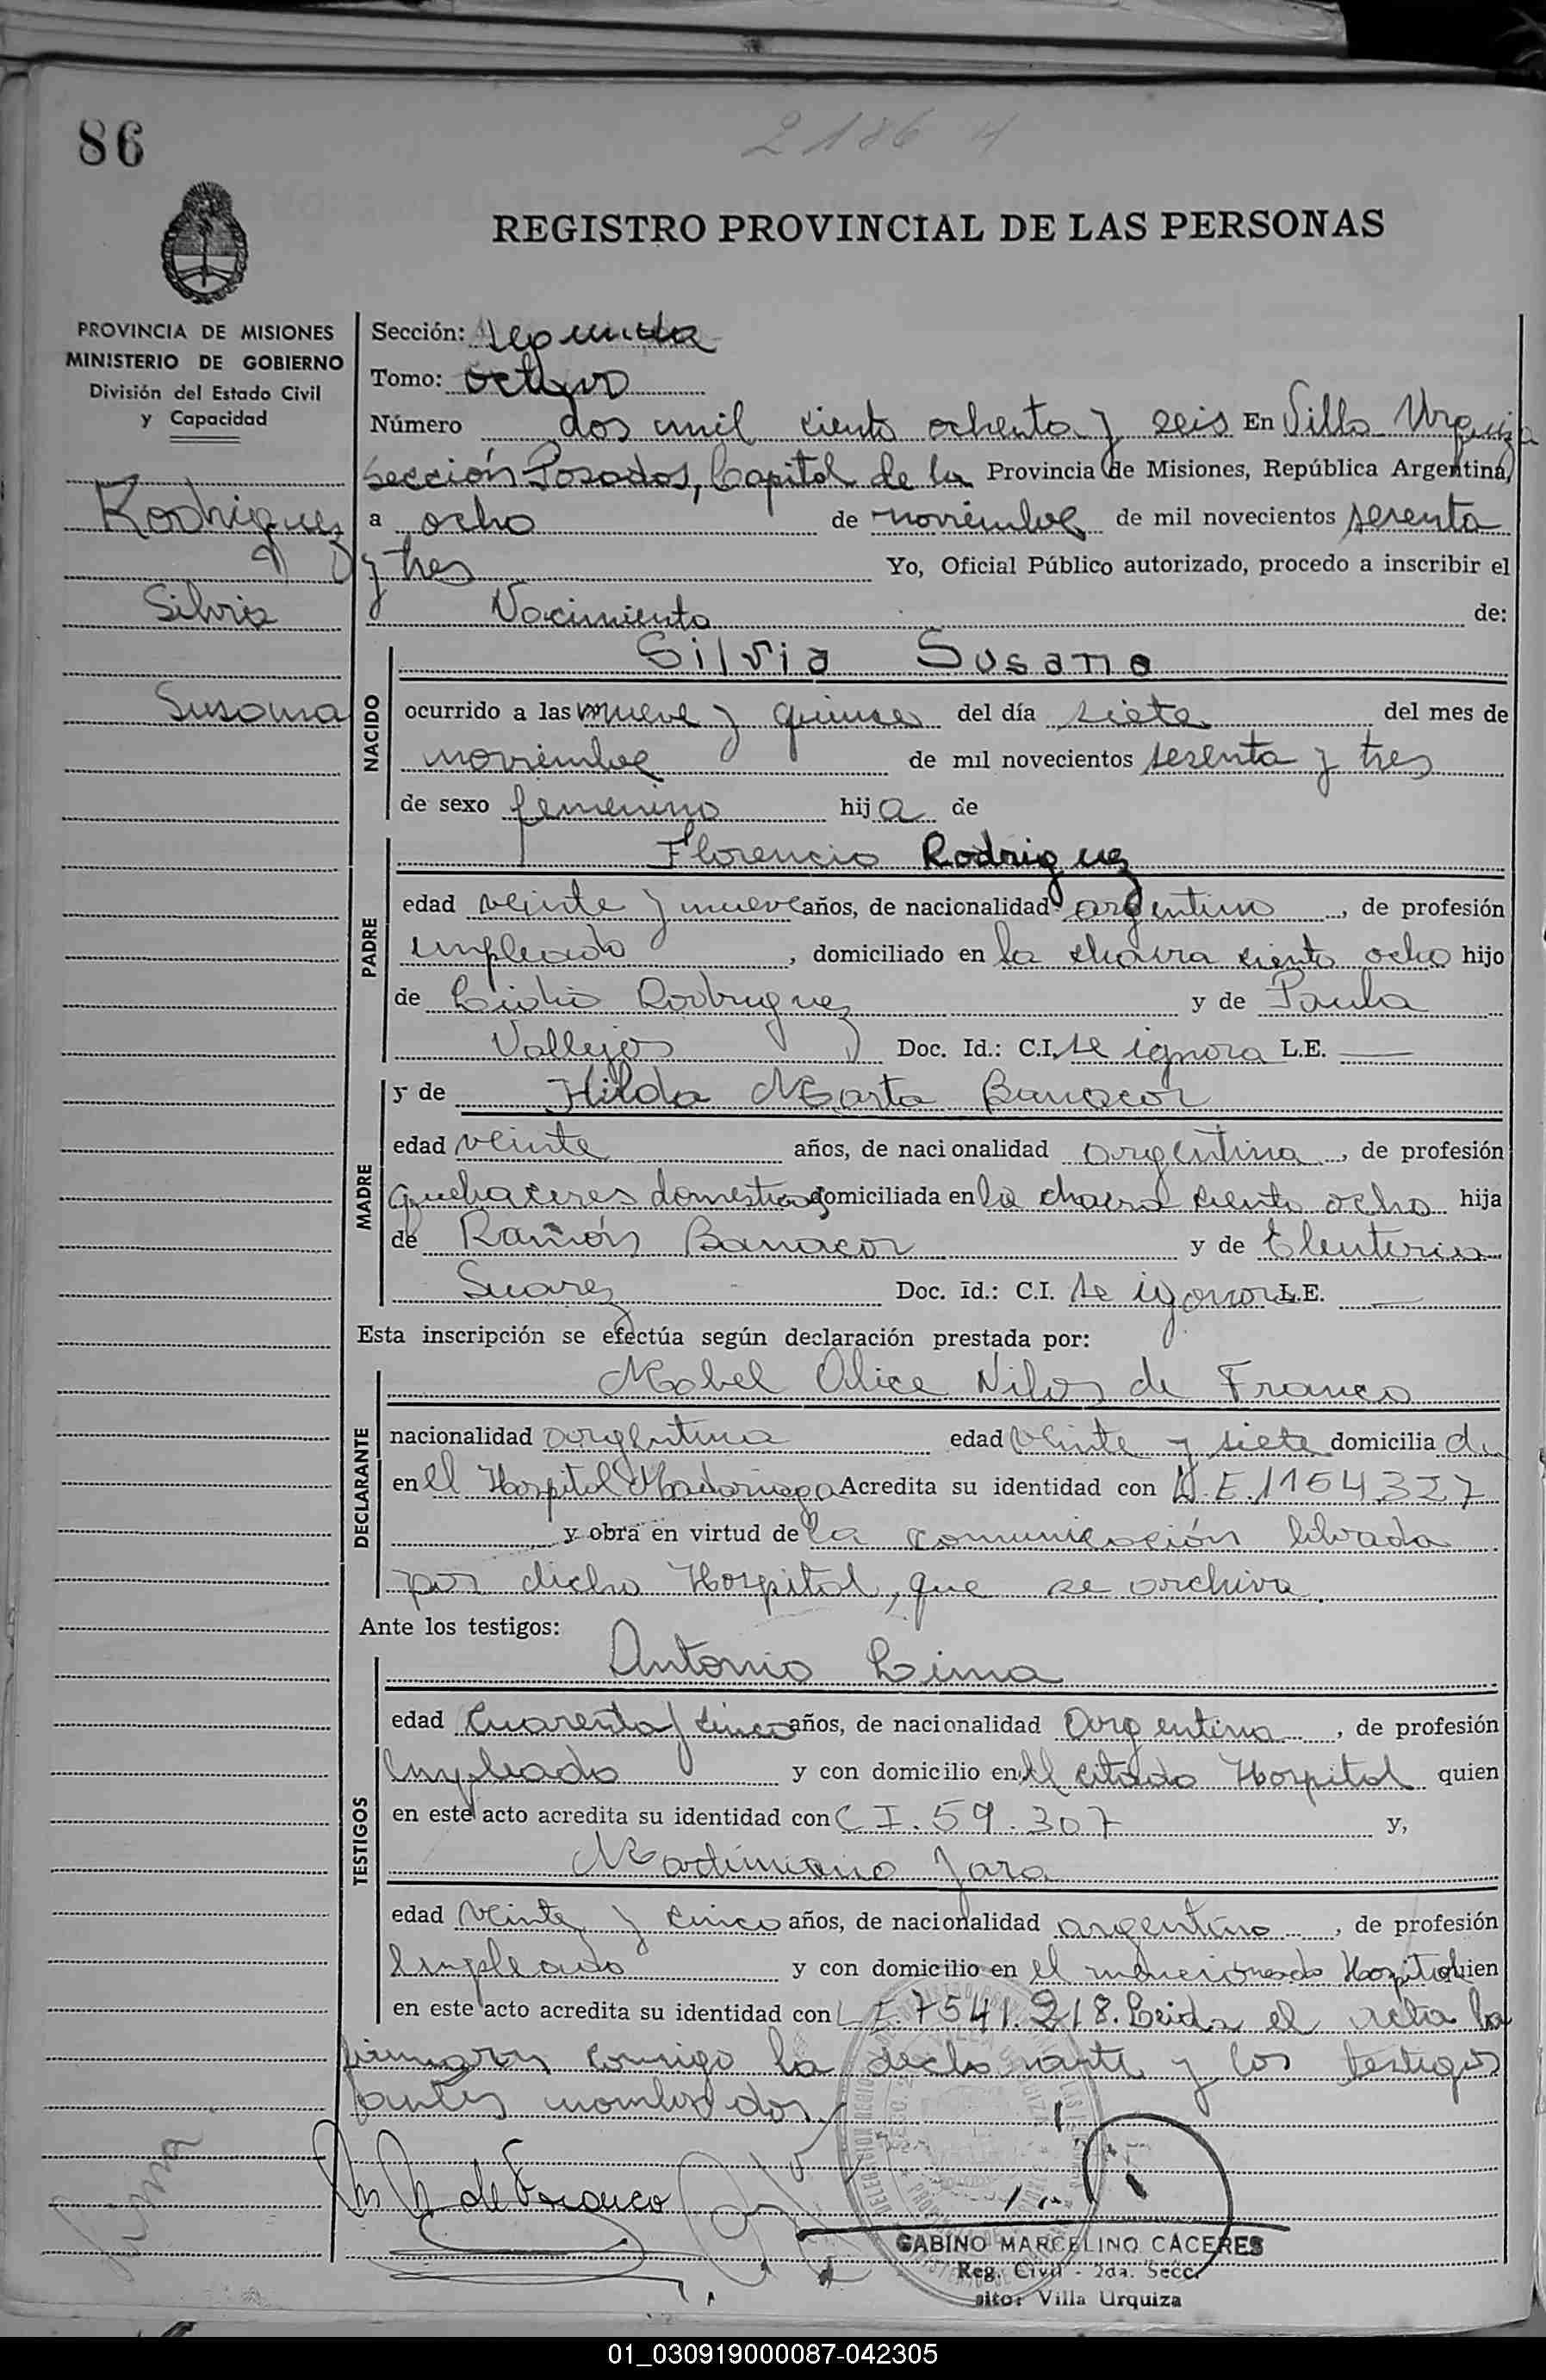 86
2186 4
REGISTRO PROVINCIAL DE LAS PERSONAS
PROVINCIA DE MISIONES
MINISTERIO DE GOBIERNO
División del Estado Civil
y Capacidad
Rodriguez
Silvia
Susana
Sección: segunda
Tomo: octavo
Número dos mil ciento ochenta y seis En Villa Urquiza
Sección Posadas, Capital de la Provincia de Misiones, República Argentina,
a ocho de noviembre de mil novecientos sesenta
y tres Yo, Oficial Público autorizado, procedo a inscribir el
Nacimiento de:
NACIDO
Silvia Susana
ocurrido a las nueve y quince del día siete del mes de
noviembre de mil novecientos sesenta y tres
de sexo femenino hija de
PADRE
Florencio Rodriguez
edad veinte y nueve años, de nacionalidad argentino, de profesión
empleado, domiciliado en la chacra ciento ocho hijo
de Rodriguez y de Paula
Vallejos Doc. Id.: C.I. se ignora L.E. —
MADRE
y de Hilda Marta
edad veinte años, de nacionalidad argentina, de profesión
quehaceres domesticos domiciliada en la chacra ciento ocho hija
de Ramón y de Eleuteria
Suarez Doc. id.: C.I. se ignora L.E. —
Esta inscripción se efectúa según declaración prestada por:
DECLARANTE
Mabel Alice de Franco
nacionalidad argentina edad veinte y siete domicilia da
en el Hospital Madariaga Acredita su identidad con 1154327
y obra en virtud de la comunicación librada
por dicho Hospital, que se archiva.
Ante los testigos:
TESTIGOS
Antonio Lima
edad cuarenta y cinco años, de nacionalidad argentina, de profesión
empleado y con domicilio en el citado Hospital quien
en este acto acredita su identidad con C I. 59.307 y,
Jara
edad veinte y cinco años, de nacionalidad argentino, de profesión
empleado y con domicilio en el mencionado Hospital quien
en este acto acredita su identidad con L E. 7541.218. Leida el acta la
firmaron conmigo la declarante y los testigos
antes nombrados.
de Franco
GABINO MARCELINO CACERES
Reg. Civil - 2da. Secc.
Villa Urquiza
01_030919000087-042305